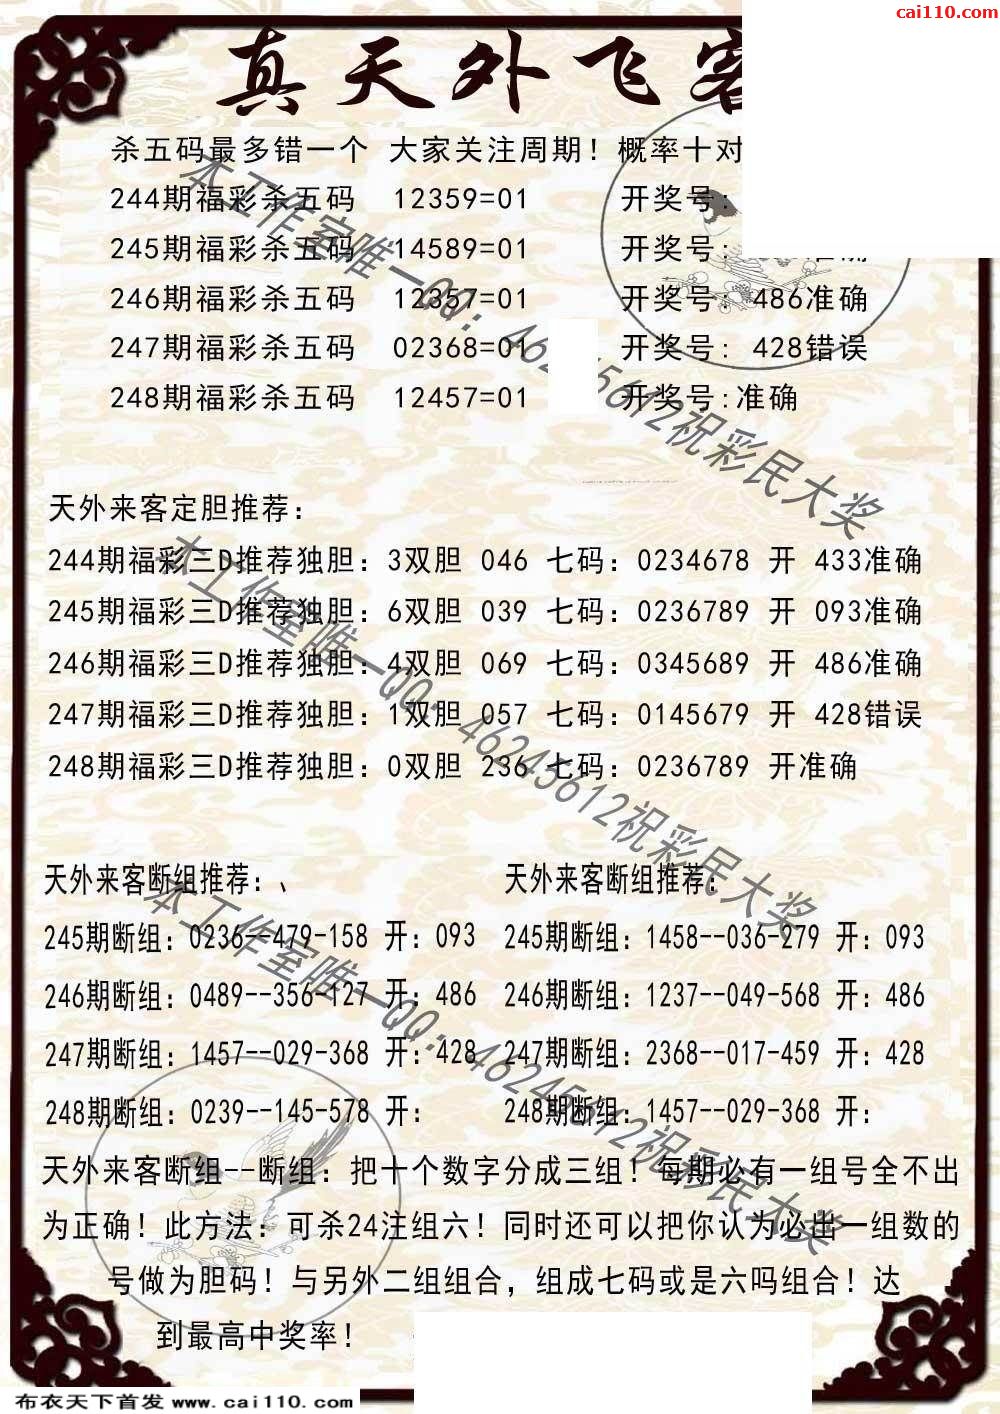 cai110.com
真天外飞客
杀五码最多错一个 大家关注周期！概率十对
244期福彩杀五码 12359=01 开奖号:
245期福彩杀五码 14589=01 开奖号:
246期福彩杀五码 12357=01 开奖号: 486准确
247期福彩杀五码 02368=01 开奖号: 428错误
248期福彩杀五码 12457=01 开奖号:准确
天外来客定胆推荐:
244期福彩三D推荐独胆: 3双胆 046 七码: 0234678 开 433准确
245期福彩三D推荐独胆: 6双胆 039 七码: 0236789 开 093准确
246期福彩三D推荐独胆: 4双胆 069 七码: 0345689 开 486准确
247期福彩三D推荐独胆: 1双胆 057 七码: 0145679 开 428错误
248期福彩三D推荐独胆: 0双胆 236 七码: 0236789 开准确
天外来客断组推荐:、 天外来客断组推荐:
245期断组: 0236--479-158 开: 093 245期断组: 1458--036-279 开: 093
246期断组: 0489--356-127 开: 486 246期断组: 1237--049-568 开: 486
247期断组: 1457--029-368 开: 428 247期断组: 2368--017-459 开: 428
248期断组: 0239--145-578 开: 248期断组: 1457--029-368 开:
天外来客断组--断组: 把十个数字分成三组！每期必有一组号全不出
为正确！此方法: 可杀24注组六！同时还可以把你认为必出一组数的
号做为胆码！与另外二组组合，组成七码或是六吗组合！达
到最高中奖率！
本工作室唯一QQ: 46245612祝彩民大奖
本工作室唯一QQ: 46245612祝彩民大奖
本工作室唯一QQ: 46245612祝彩民大奖
布衣天下首发 www.cai110.com